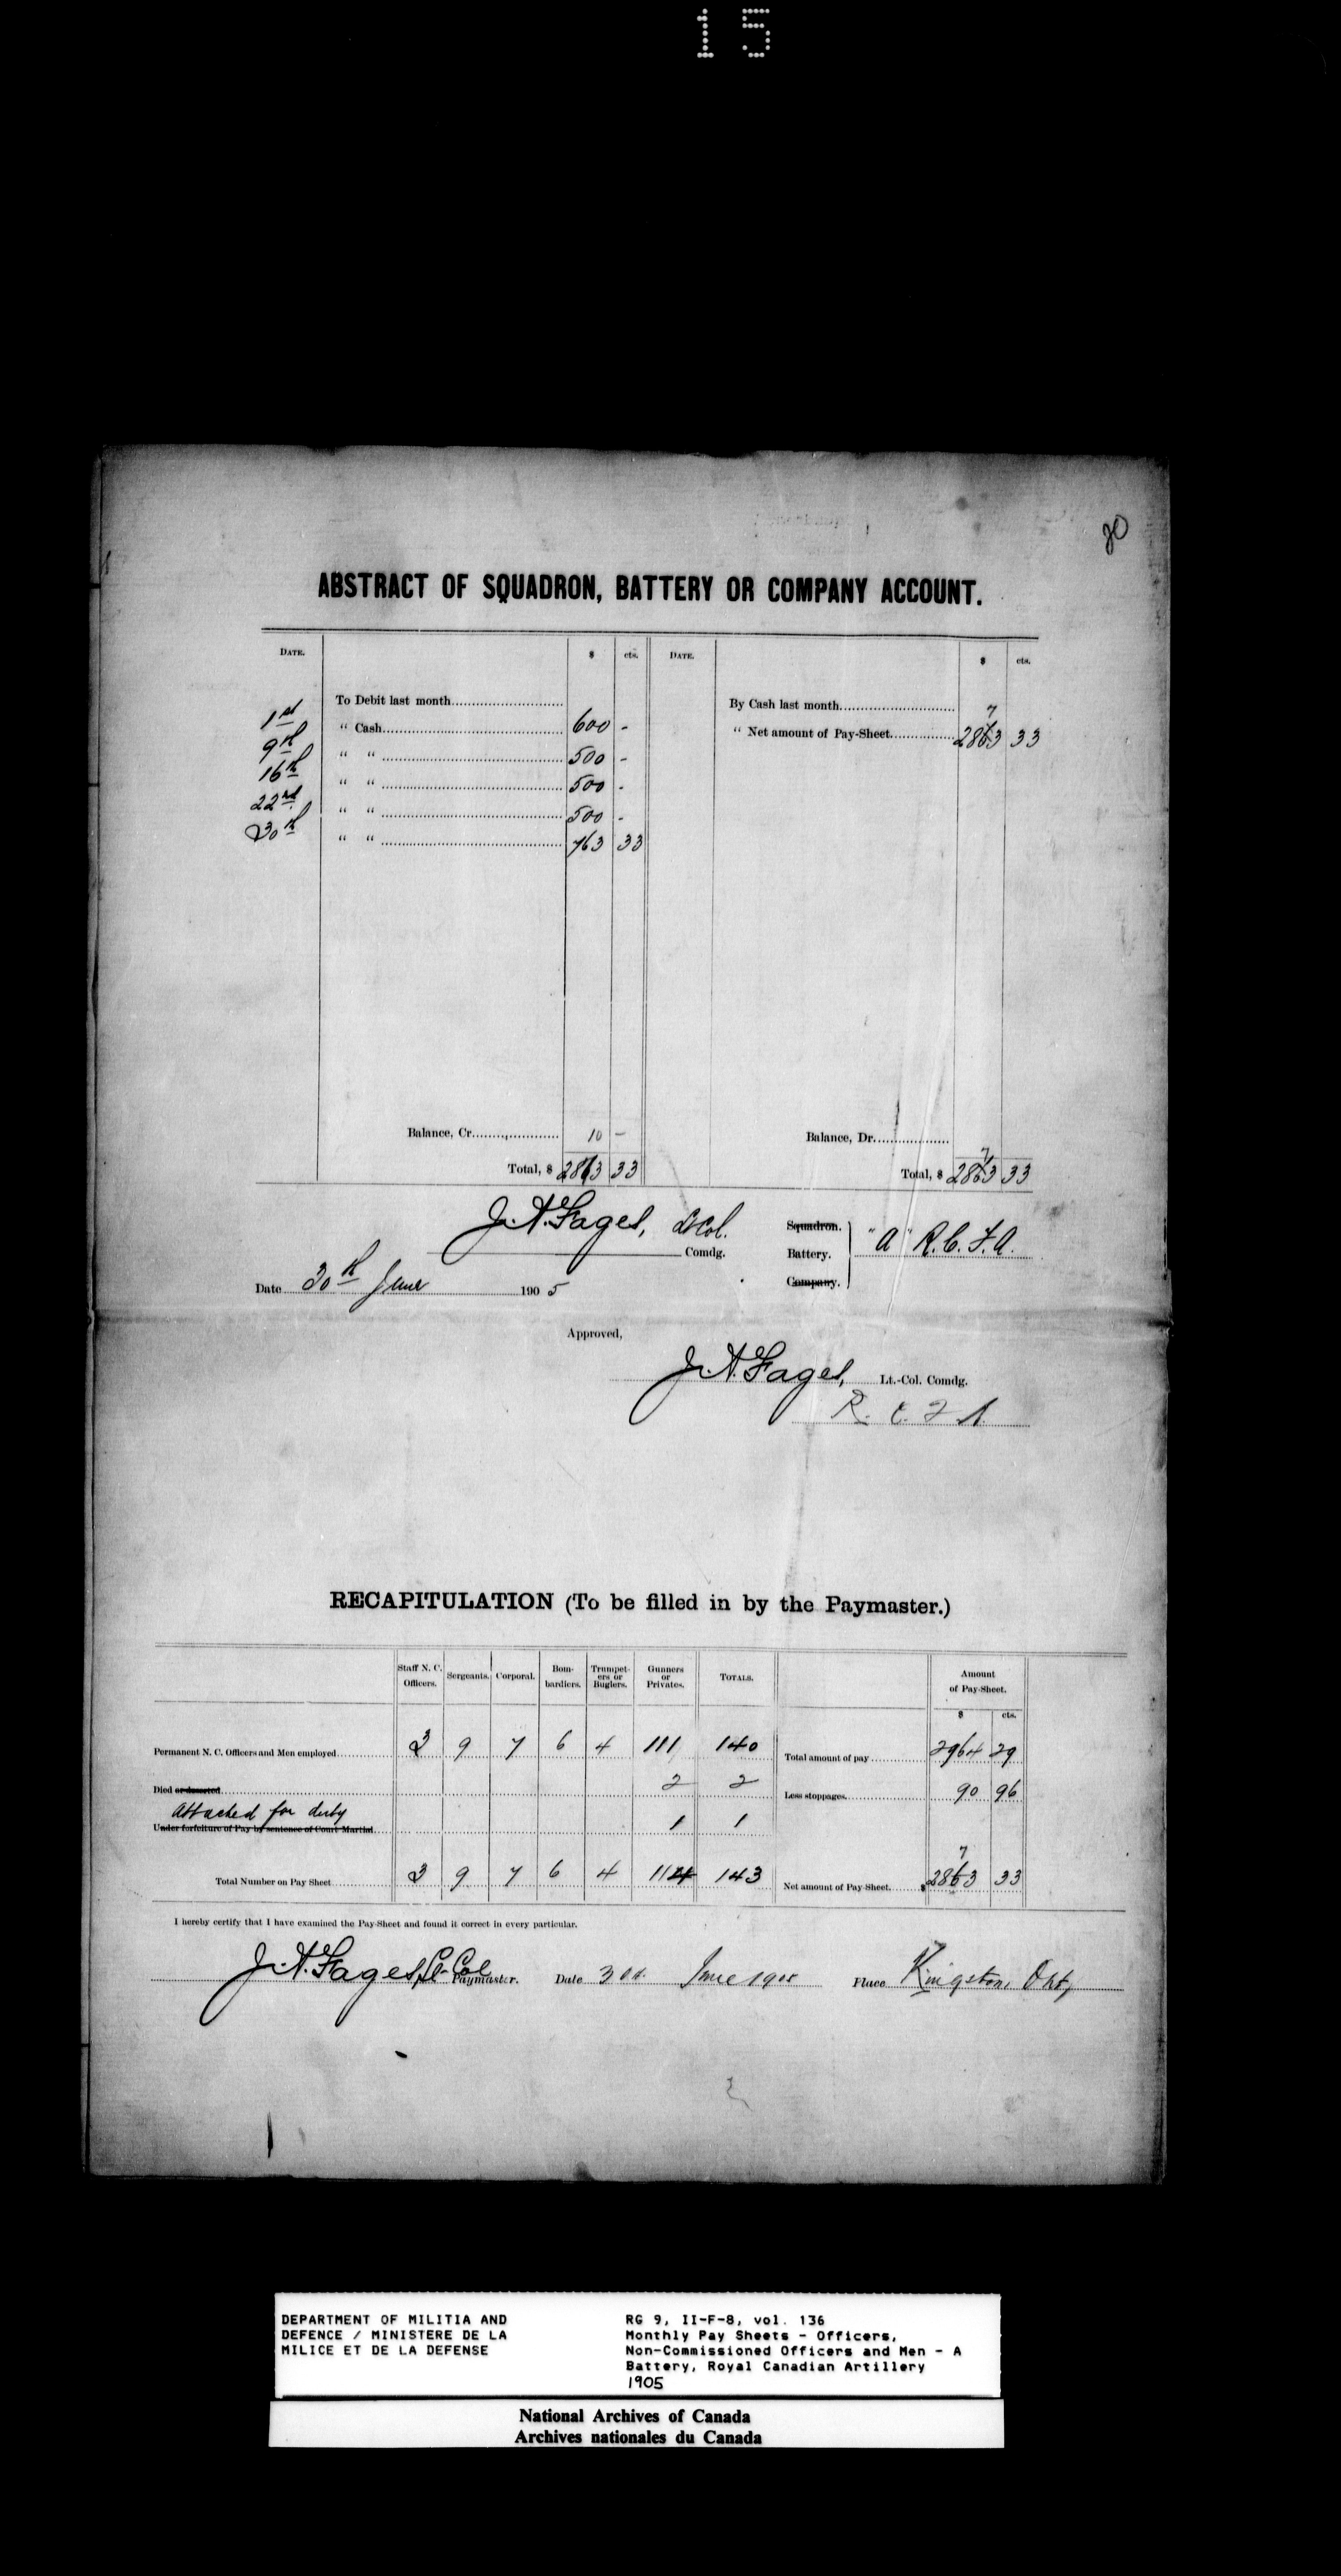 15
20
ABSTRACT OF SQUADRON, BATTERY OR COMPANY ACCOUNT.
DATE. $ cts. DATE. $ cts.
To Debit last month By Cash last month
1st " Cash 600 - " Net amount of Pay-Sheet 2873 33
9th " " 500 -
16th " " 500 -
22nd " " 500 -
30th " " 763 33
Balance, Cr. 10 - Balance, Dr.
Total, $ 2873 33 Total, $ 2873 33
J.A. Fages, Lt Col. Comdg.
Squadron.
Battery. "A" R.C.F.A.
Company.
Date 30th June 1905
Approved,
J.A. Fages, Lt.-Col. Comdg.
R.C.F.A.
RECAPITULATION (To be filled in by the Paymaster.)
Staff N. C. Officers. Sergeants. Corporal. Bombardiers. Trumpeters or Buglers. Gunners or Privates. TOTALS. Amount of Pay-Sheet.
$ cts.
Permanent N. C. Officers and Men employed 3 9 7 6 4 111 140 Total amount of pay 2964 29
Died or deserted 2 2 Less stoppages 90 96
Attached for duty
Under forfeiture of Pay by sentence of Court Martial 1 1
Total Number on Pay Sheet 3 9 7 6 4 114 143 Net amount of Pay-Sheet $ 2873 33
I hereby certify that I have examined the Pay-Sheet and found it correct in every particular.
J.A. Fages, Lt-Col Paymaster. Date 30th June 1905 Place Kingston, Ont,
DEPARTMENT OF MILITIA AND
DEFENCE / MINISTERE DE LA
MILICE ET DE LA DEFENSE
RG 9, II-F-8, vol. 136
Monthly Pay Sheets - Officers,
Non-Commissioned Officers and Men - A
Battery, Royal Canadian Artillery
1905
National Archives of Canada
Archives nationales du Canada